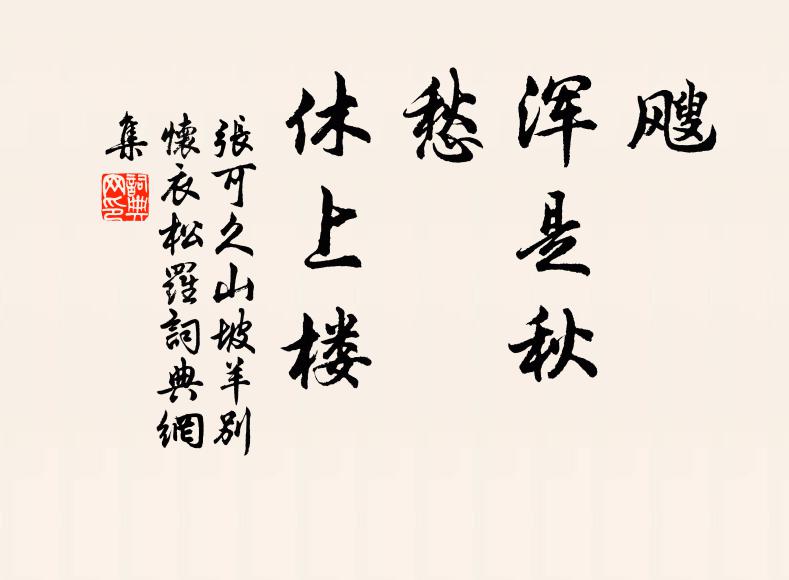 飕
浑是秋
愁
休上楼
張可久山坡羊别
懷衣松羅詞典網
集
詞典
网印